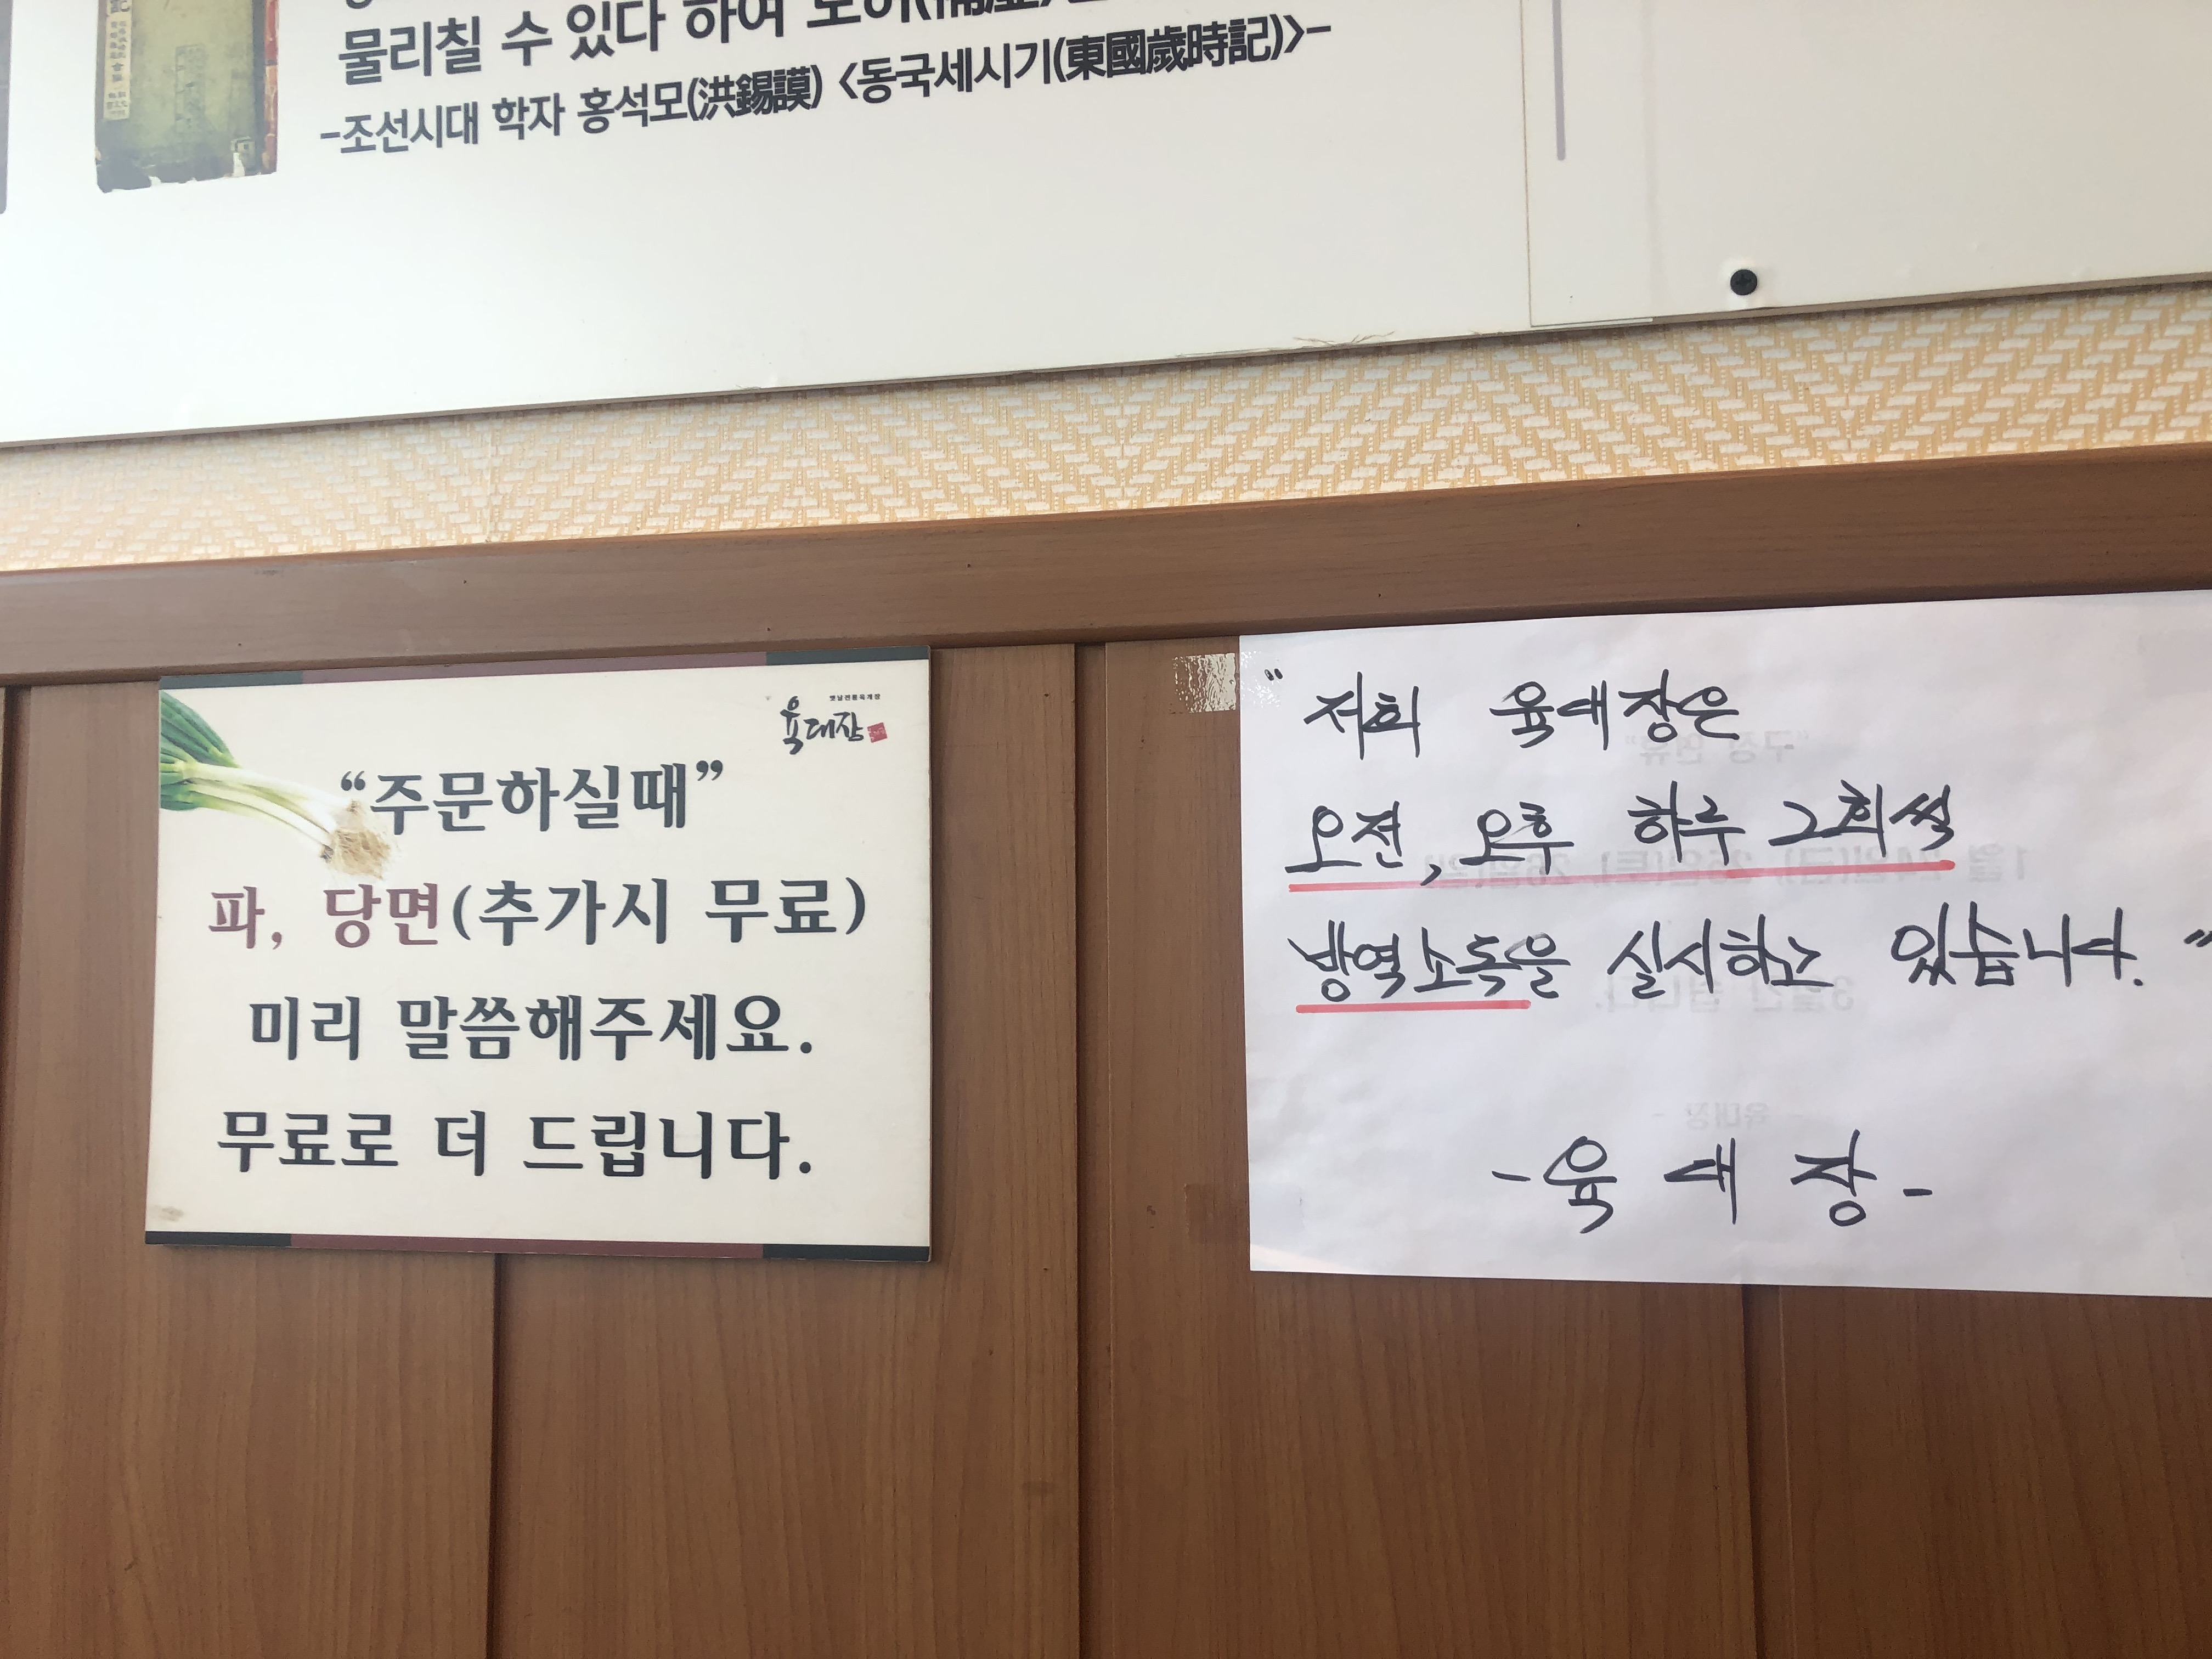 물리칠 수 있다 하여
-조선시대 학자 홍석모(洪錫謨) <동국세시기(東國歲時記)>-
옛날전통육개장
육대장
“주문하실때”
파, 당면(추가시 무료)
미리 말씀해주세요.
무료로 더 드립니다.
" 저희 육대장은
오전, 오후 하루 2회씩
방역소독을 실시하고 있습니다. "
- 육 대 장 -